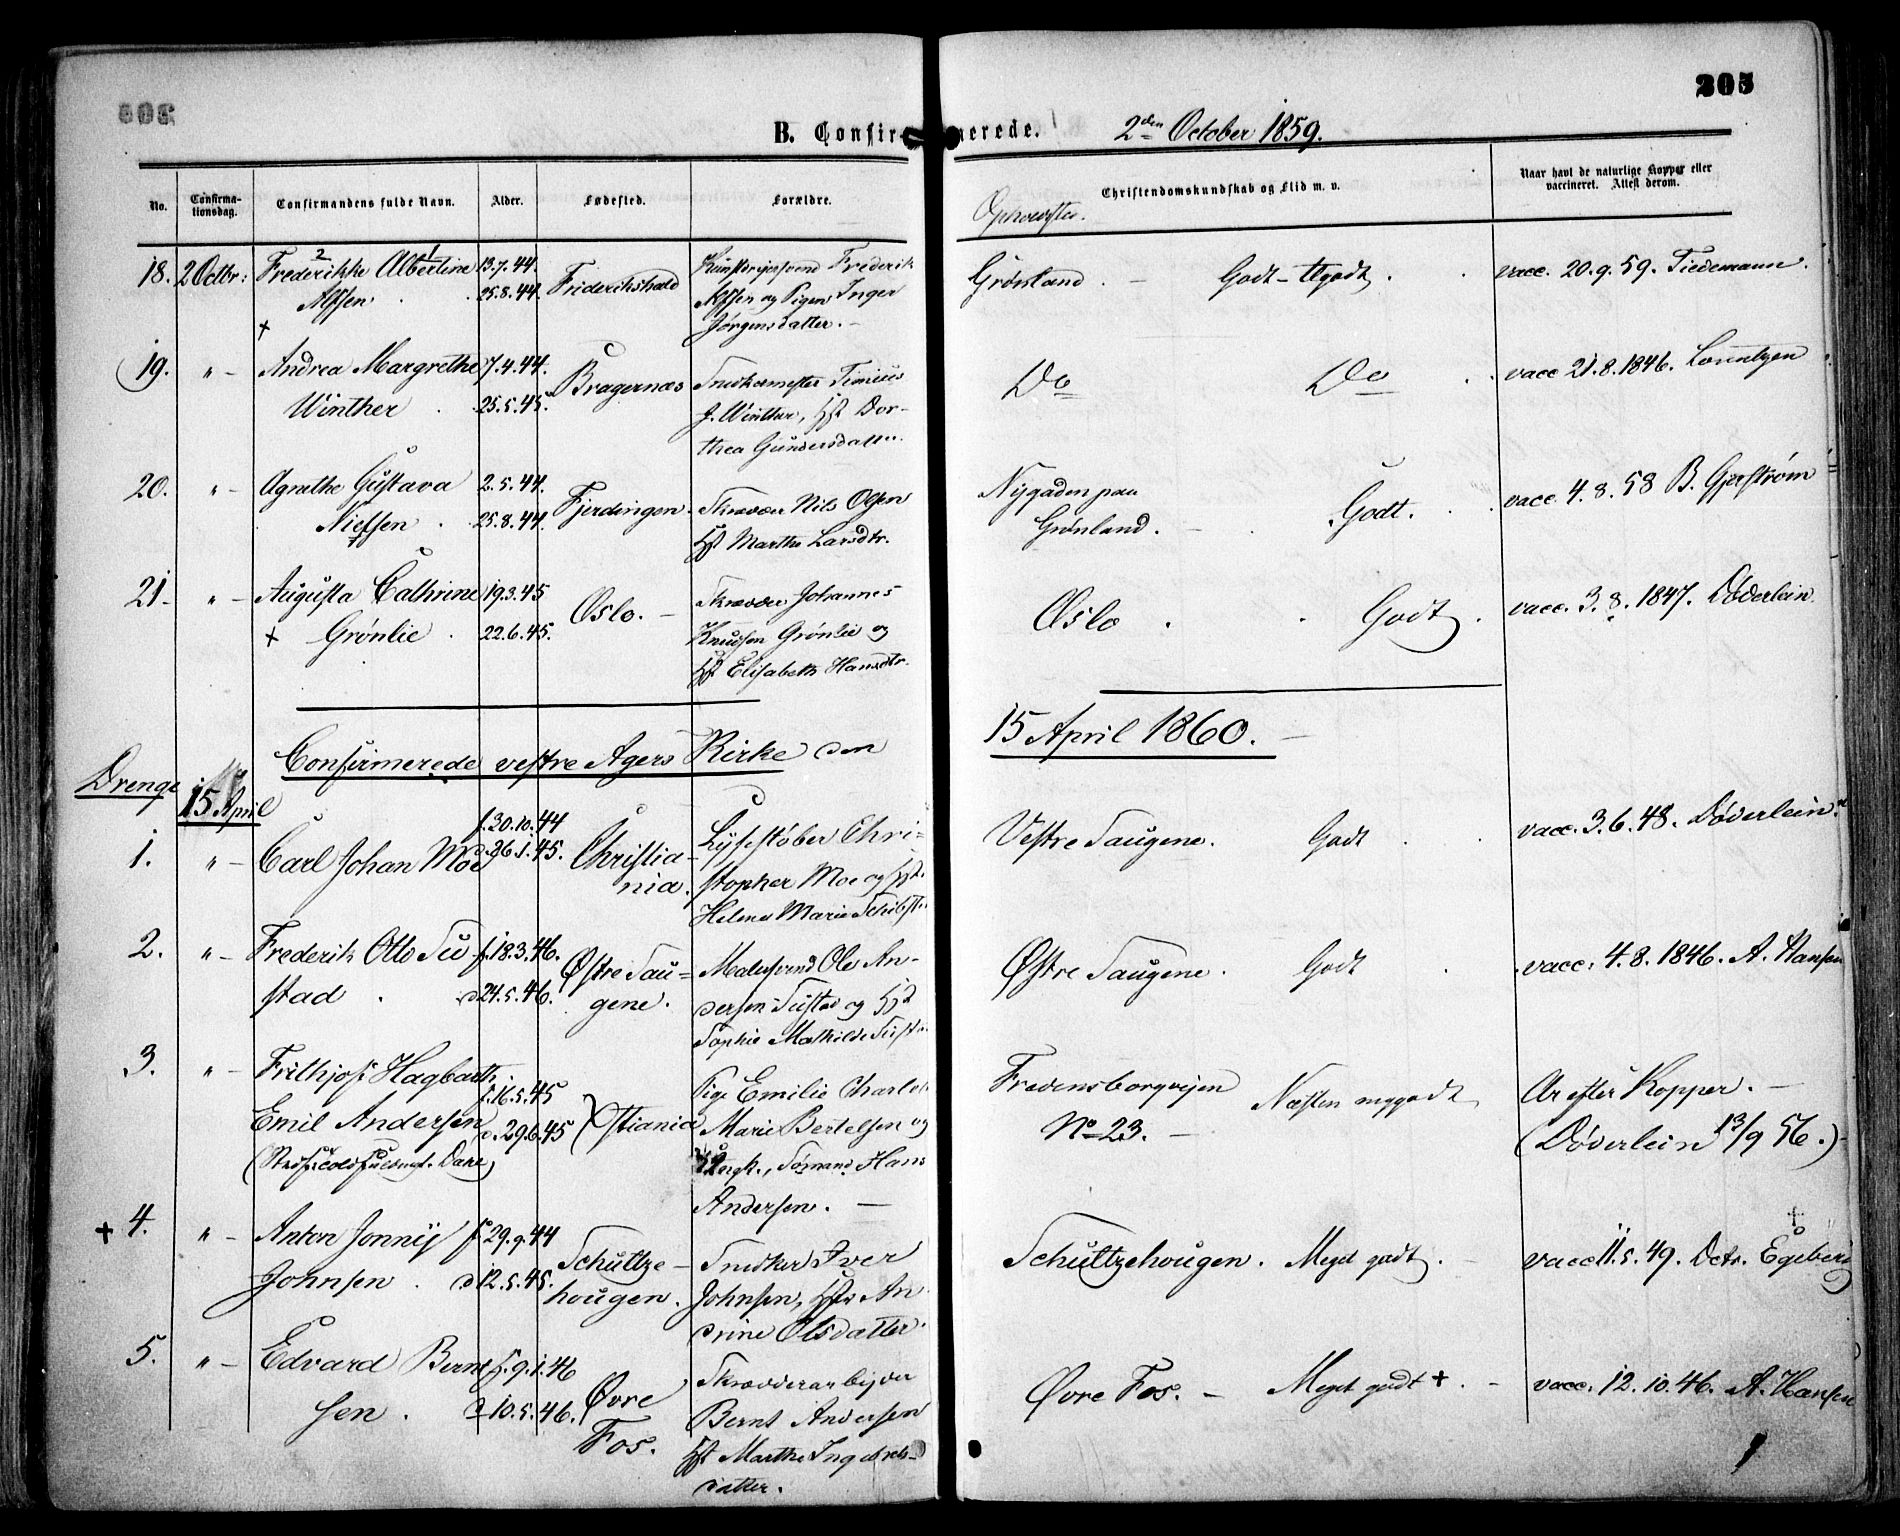 305
B. Confirmerede. 2den October 1859.
No. Confirmationsdag. Confirmandens fulde Navn. Alder. Fødested. Forældre. Christendomskundskab og Flid m. v. Naar havt de naturlige Kopper eller vaccineret. Attest derom.
Opholdsted.
18. 2 Octbr: Frederikke Albertine 13.7.44. Friderikshald Frederik
25.8.44. og Pigen Inger
Jørgensdatter. –
Grønland. – Godt – tlgodt. vacc. 20.9.59. Tiedemann.
19. " – Andrea Margrethe 7.4.44. Bragernæs Snedkermester
Winther . 25.5.45. J. Winther, Hst Dor-
thea Gundersdatter.
Do Do vacc 21.8.1846. Lorentzen
20. " – Agnethe Gustava 2.5.44. Fjerdingen. Skrædder Nils Olsen
Nielsen . 25.8.44. Hst Marthe Larsdtr.
Nygaden paa Godt. vacc. 4.8.58 B. Gjerstrøm
Grønland. –
21 – " – Augusta Cathrine 19.3.45 Oslo. – Skrædder Johannes
+ Grønlie . 22.6.45. Knudsen Grønlie og
Hst Elisabeth Hansdtr.
Oslo . Godt . vacc. 3.8.1847. Døderlein
Confirmerede vestre Agers Kirke den 15 April 1860. –
Drenge
15 April
1. " – Carl Johan Moe f. 30.10.44 Christia- Lysestøber Chri-
d. 26.1.45. nia. stopher Moe og Hst.
Helene Marie
Vestre Saugene. Godt vacc. 3.6.48. Døderlein.
2. " – Frederik Otto Su- f. 18.3.46. Østre Sau- Malersvend Ole An-
stad . d 24.5.46. gene. dersen Sustad og Hst
Sophie Mathilde
Østre Saugene. Godt vacc. 4.8.1846. A. Hansen
3. " – Frithjof Hagbarth f. 16.5.45 Xstiania Pige Emilie
Emil Andersen d. 29.6.45 Marie Bertelsen og
Ungk., Sømand Hans
Andersen. –
Fredensborgvejen Næsten mggodt Ar efter Kopper. –
No 23. – (Døderlein 13/9 56.)
+ 4. " – Anton Jonnij f 29.9.44 Schultze- Snedker Iver
Johnsen . d 12.5.45. hougen. Johnsen, Hst An-
drine Olsdatter.
Schultzehougen. Meget godt. – vacc 11.5.49. Dctr. Egeberg
5. " – Edvard Bernt- f. 9.1.46 Øvre Skrædderarbejder
sen . d 10.5.46. Fos. Bernt Andersen
Hst Marthe Ingebrets-
datter.
Øvre Fos. – Meget godt + . – vacc. 12.10.46. A. Hansen